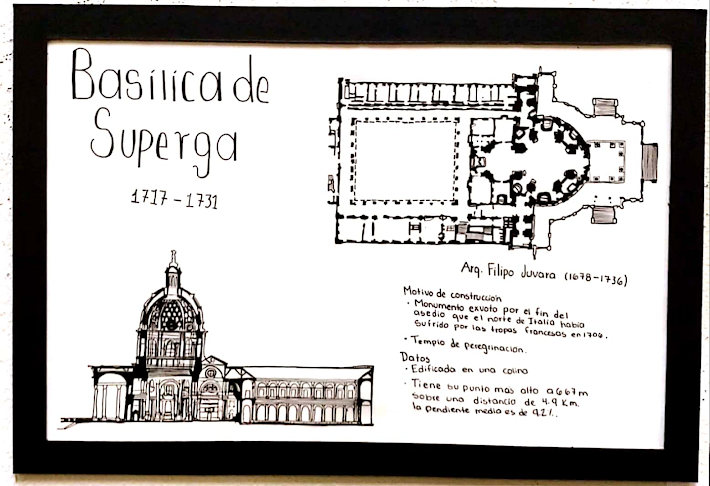 Basílica de
Superga
1717 - 1731
Arq. Filipo Juvara (1678-1736)
Motivo de construcción
· Monumento exvoto por el fin del
asedio que el norte de Italia había
sufrido por las tropas francesas en 1706.
· Templo de peregrinación.
Datos
· Edificada en una colina
· Tiene su punto mas alto a 667m
sobre una distancia de 4.9 Km.
la pendiente media es de 9.2%.